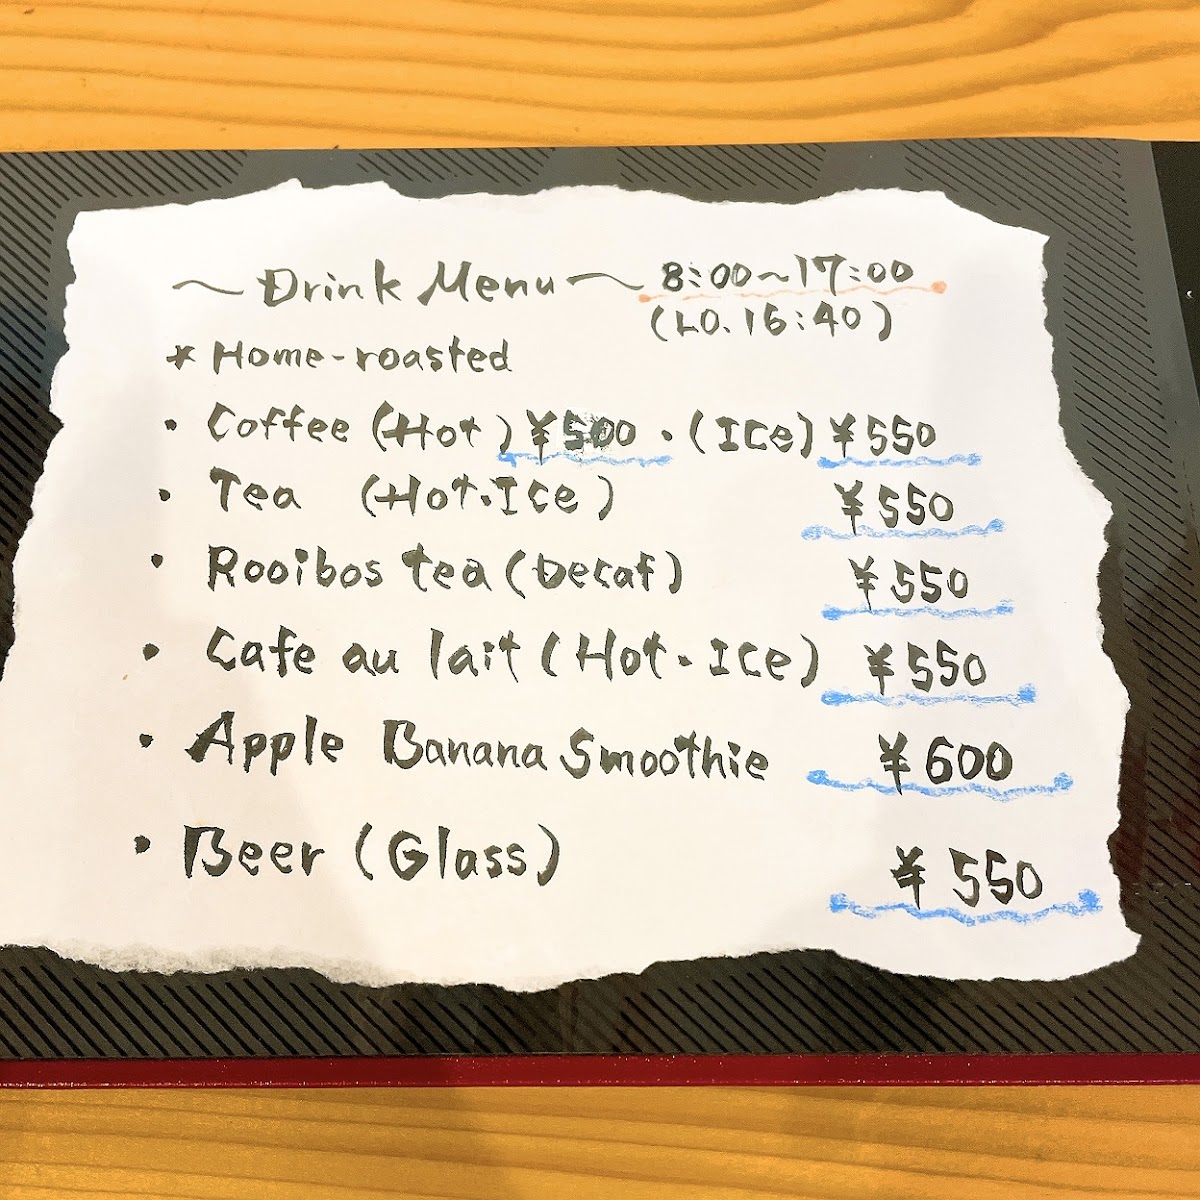 ～Drink Menu～ 8:00～17:00
(LO. 16:40)
* Home-roasted
・ Coffee (Hot) ¥500 ・(Ice) ¥550
・ Tea (Hot・Ice) ¥550
・ Rooibos tea (Decaf) ¥550
・ Cafe au lait (Hot・Ice) ¥550
・ Apple Banana Smoothie ¥600
・ Beer (Glass) ¥550